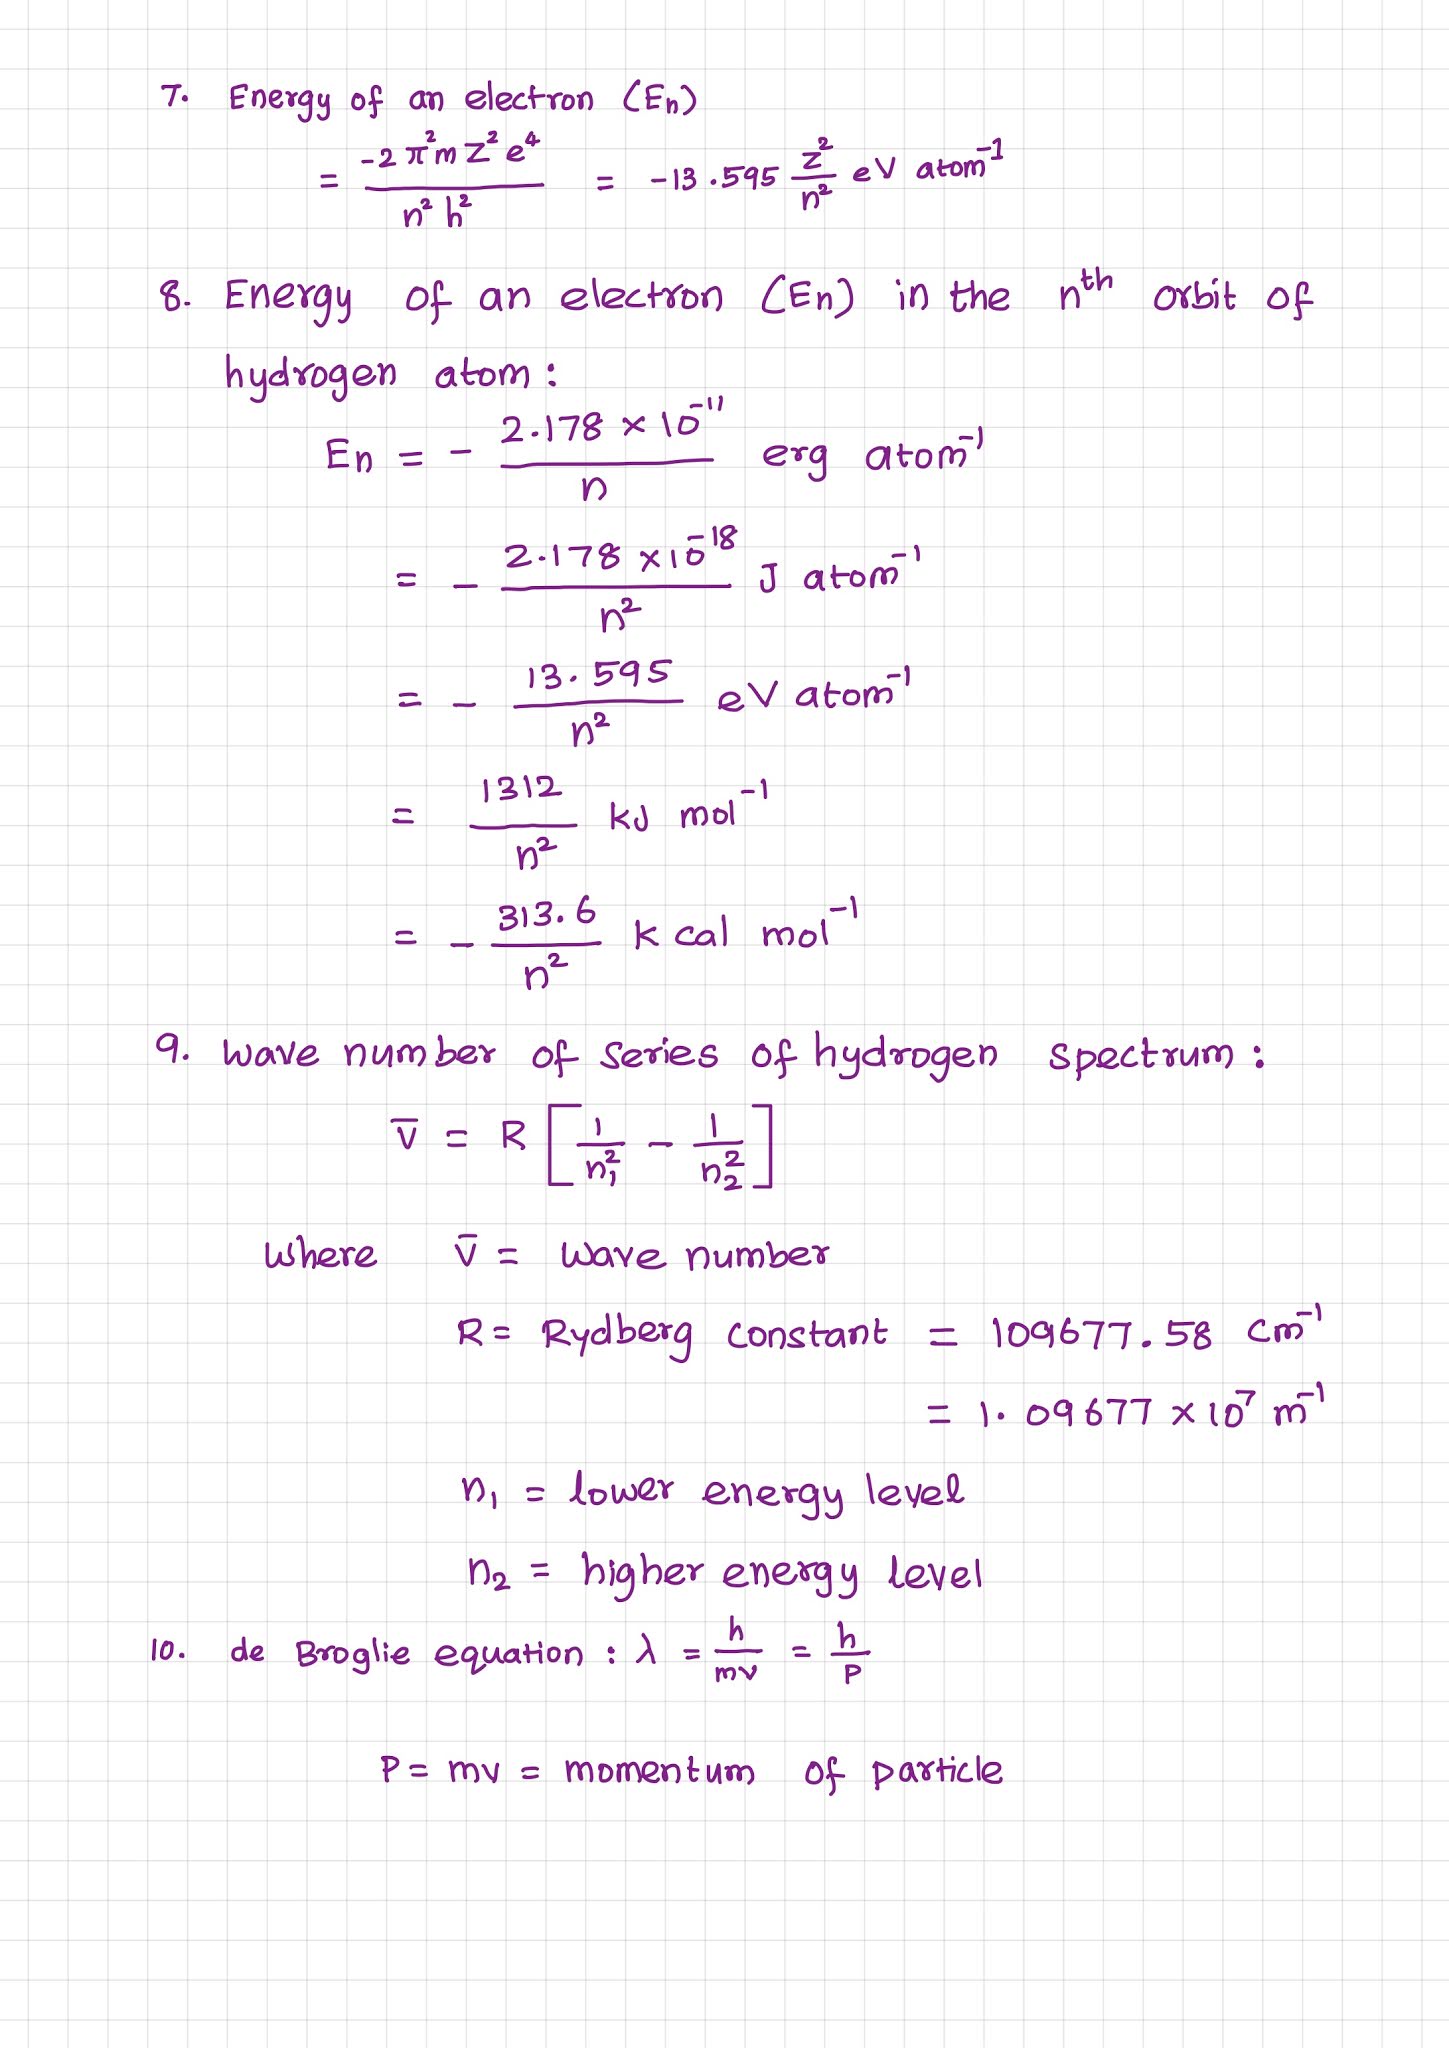 7. Energy of an electron (En)
= -2 π² m Z² e⁴ / n² h² = -13.595 Z²/n² eV atom⁻¹
8. Energy of an electron (En) in the nᵗʰ orbit of
hydrogen atom:
En = - 2.178 × 10⁻¹¹ / n erg atom⁻¹
= - 2.178 × 10⁻¹⁸ / n² J atom⁻¹
= - 13.595 / n² eV atom⁻¹
= 1312 / n² kJ mol⁻¹
= - 313.6 / n² k cal mol⁻¹
9. Wave number of series of hydrogen spectrum:
V̅ = R [1/n₁² - 1/n₂²]
Where V̅ = Wave number
R = Rydberg constant = 109677.58 cm⁻¹
= 1.09677 × 10⁷ m⁻¹
n₁ = lower energy level
n₂ = higher energy level
10. de Broglie equation: λ = h/mv = h/P
P = mv = momentum of particle